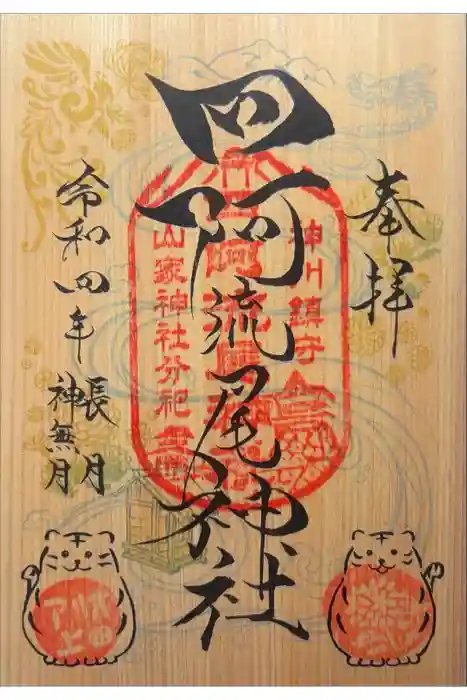 奉拝
神川鎮守
四阿流尾神社
山家神社分祀
令和四年
長月
神無月